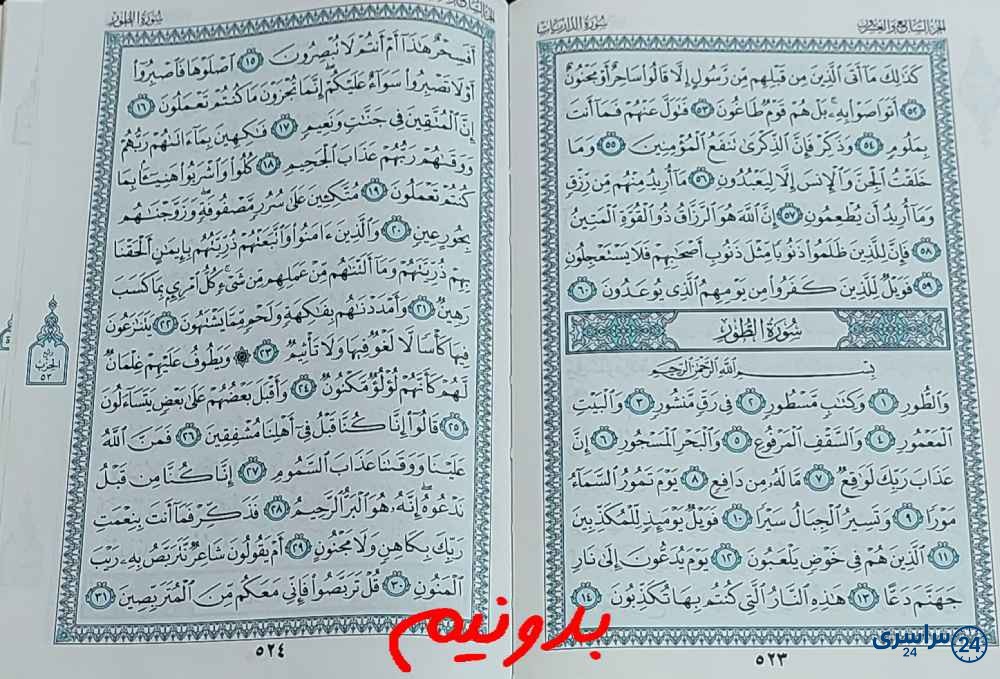 الجزء السابع والعشرون
سورة الذاريات
كَذَٰلِكَ مَآ أَتَى ٱلَّذِينَ مِن قَبۡلِهِم مِّن رَّسُولٍ إِلَّا قَالُواْ سَاحِرٌ أَوۡ مَجۡنُونٌ
٥٢ أَتَوَاصَوۡاْ بِهِۦۚ بَلۡ هُمۡ قَوۡمٞ طَاغُونَ ٥٣ فَتَوَلَّ عَنۡهُمۡ فَمَآ أَنتَ
بِمَلُومٖ ٥٤ وَذَكِّرۡ فَإِنَّ ٱلذِّكۡرَىٰ تَنفَعُ ٱلۡمُؤۡمِنِينَ ٥٥ وَمَا
خَلَقۡتُ ٱلۡجِنَّ وَٱلۡإِنسَ إِلَّا لِيَعۡبُدُونِ ٥٦ مَآ أُرِيدُ مِنۡهُم مِّن رِّزۡقٖ
وَمَآ أُرِيدُ أَن يُطۡعِمُونِ ٥٧ إِنَّ ٱللَّهَ هُوَ ٱلرَّزَّاقُ ذُو ٱلۡقُوَّةِ ٱلۡمَتِينُ
٥٨ فَإِنَّ لِلَّذِينَ ظَلَمُواْ ذَنُوبٗا مِّثۡلَ ذَنُوبِ أَصۡحَٰبِهِمۡ فَلَا يَسۡتَعۡجِلُونِ
٥٩ فَوَيۡلٞ لِّلَّذِينَ كَفَرُواْ مِن يَوۡمِهِمُ ٱلَّذِي يُوعَدُونَ ٦٠
سُورَةُ الطُّورِ
بِسۡمِ ٱللَّهِ ٱلرَّحۡمَٰنِ ٱلرَّحِيمِ
وَٱلطُّورِ ١ وَكِتَٰبٖ مَّسۡطُورٖ ٢ فِي رَقّٖ مَّنشُورٖ ٣ وَٱلۡبَيۡتِ
ٱلۡمَعۡمُورِ ٤ وَٱلسَّقۡفِ ٱلۡمَرۡفُوعِ ٥ وَٱلۡبَحۡرِ ٱلۡمَسۡجُورِ ٦ إِنَّ
عَذَابَ رَبِّكَ لَوَٰقِعٞ ٧ مَّا لَهُۥ مِن دَافِعٖ ٨ يَوۡمَ تَمُورُ ٱلسَّمَآءُ
مَوۡرٗا ٩ وَتَسِيرُ ٱلۡجِبَالُ سَيۡرٗا ١٠ فَوَيۡلٞ يَوۡمَئِذٖ لِّلۡمُكَذِّبِينَ
١١ ٱلَّذِينَ هُمۡ فِي خَوۡضٖ يَلۡعَبُونَ ١٢ يَوۡمَ يُدَعُّونَ إِلَىٰ نَارِ
جَهَنَّمَ دَعًّا ١٣ هَٰذِهِ ٱلنَّارُ ٱلَّتِي كُنتُم بِهَا تُكَذِّبُونَ ١٤
٥٢٣
سورة الطور
أَفَسِحۡرٌ هَٰذَآ أَمۡ أَنتُمۡ لَا تُبۡصِرُونَ ١٥ ٱصۡلَوۡهَا فَٱصۡبِرُوٓاْ
أَوۡ لَا تَصۡبِرُواْ سَوَآءٌ عَلَيۡكُمۡۖ إِنَّمَا تُجۡزَوۡنَ مَا كُنتُمۡ تَعۡمَلُونَ ١٦
إِنَّ ٱلۡمُتَّقِينَ فِي جَنَّٰتٖ وَنَعِيمٖ ١٧ فَٰكِهِينَ بِمَآ ءَاتَىٰهُمۡ رَبُّهُمۡ
وَوَقَىٰهُمۡ رَبُّهُمۡ عَذَابَ ٱلۡجَحِيمِ ١٨ كُلُواْ وَٱشۡرَبُواْ هَنِيٓـَٔۢا بِمَا
كُنتُمۡ تَعۡمَلُونَ ١٩ مُتَّكِـِٔينَ عَلَىٰ سُرُرٖ مَّصۡفُوفَةٖۖ وَزَوَّجۡنَٰهُم
بِحُورٍ عِينٖ ٢٠ وَٱلَّذِينَ ءَامَنُواْ وَٱتَّبَعَتۡهُمۡ ذُرِّيَّتُهُم بِإِيمَٰنٍ أَلۡحَقۡنَا
بِهِمۡ ذُرِّيَّتَهُمۡ وَمَآ أَلَتۡنَٰهُم مِّنۡ عَمَلِهِم مِّن شَيۡءٖۚ كُلُّ ٱمۡرِيِٕۭ بِمَا كَسَبَ
رَهِينٞ ٢١ وَأَمۡدَدۡنَٰهُم بِفَٰكِهَةٖ وَلَحۡمٖ مِّمَّا يَشۡتَهُونَ ٢٢ يَتَنَٰزَعُونَ
فِيهَا كَأۡسٗا لَّا لَغۡوٞ فِيهَا وَلَا تَأۡثِيمٞ ٢٣ ۞ وَيَطُوفُ عَلَيۡهِمۡ غِلۡمَانٞ
لَّهُمۡ كَأَنَّهُمۡ لُؤۡلُؤٞ مَّكۡنُونٞ ٢٤ وَأَقۡبَلَ بَعۡضُهُمۡ عَلَىٰ بَعۡضٖ يَتَسَآءَلُونَ
٢٥ قَالُوٓاْ إِنَّا كُنَّا قَبۡلُ فِيٓ أَهۡلِنَا مُشۡفِقِينَ ٢٦ فَمَنَّ ٱللَّهُ
عَلَيۡنَا وَوَقَىٰنَا عَذَابَ ٱلسَّمُومِ ٢٧ إِنَّا كُنَّا مِن قَبۡلُ
نَدۡعُوهُۖ إِنَّهُۥ هُوَ ٱلۡبَرُّ ٱلرَّحِيمُ ٢٨ فَذَكِّرۡ فَمَآ أَنتَ بِنِعۡمَتِ
رَبِّكَ بِكَاهِنٖ وَلَا مَجۡنُونٍ ٢٩ أَمۡ يَقُولُونَ شَاعِرٞ نَّتَرَبَّصُ بِهِۦ رَيۡبَ
ٱلۡمَنُونِ ٣٠ قُلۡ تَرَبَّصُواْ فَإِنِّي مَعَكُم مِّنَ ٱلۡمُتَرَبِّصِينَ ٣١
ربع
الحزب
٥٣
٥٢٤
بدونیم
سراسری 24
24